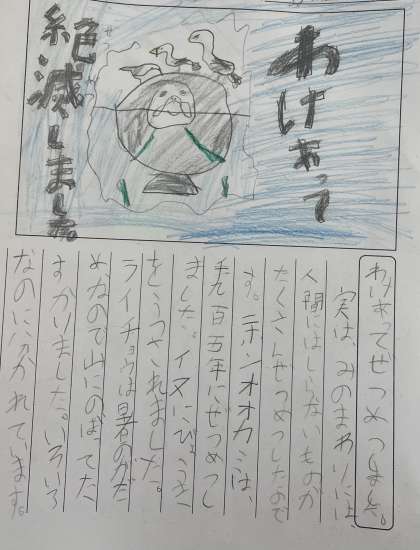 わけあって
絶滅しました。
わけあってぜつめつしました。
実は、みのまわりには、
人間にはしらないものが
たくさんぜつめつしたので
す。ニホンオオカミは、
千九百五年にぜつめつし
ました。イヌにびょうき
をうつされました。
ライチョウは暑のがだ
め、なので山にのぼてた
すかりました。いろいろ
なのに分かれています。